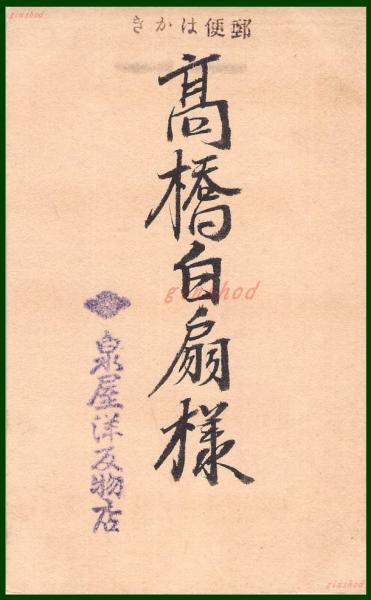 郵便はかき
髙橋白扇様
泉屋洋反物店
ginshod
ginshod
ginshod